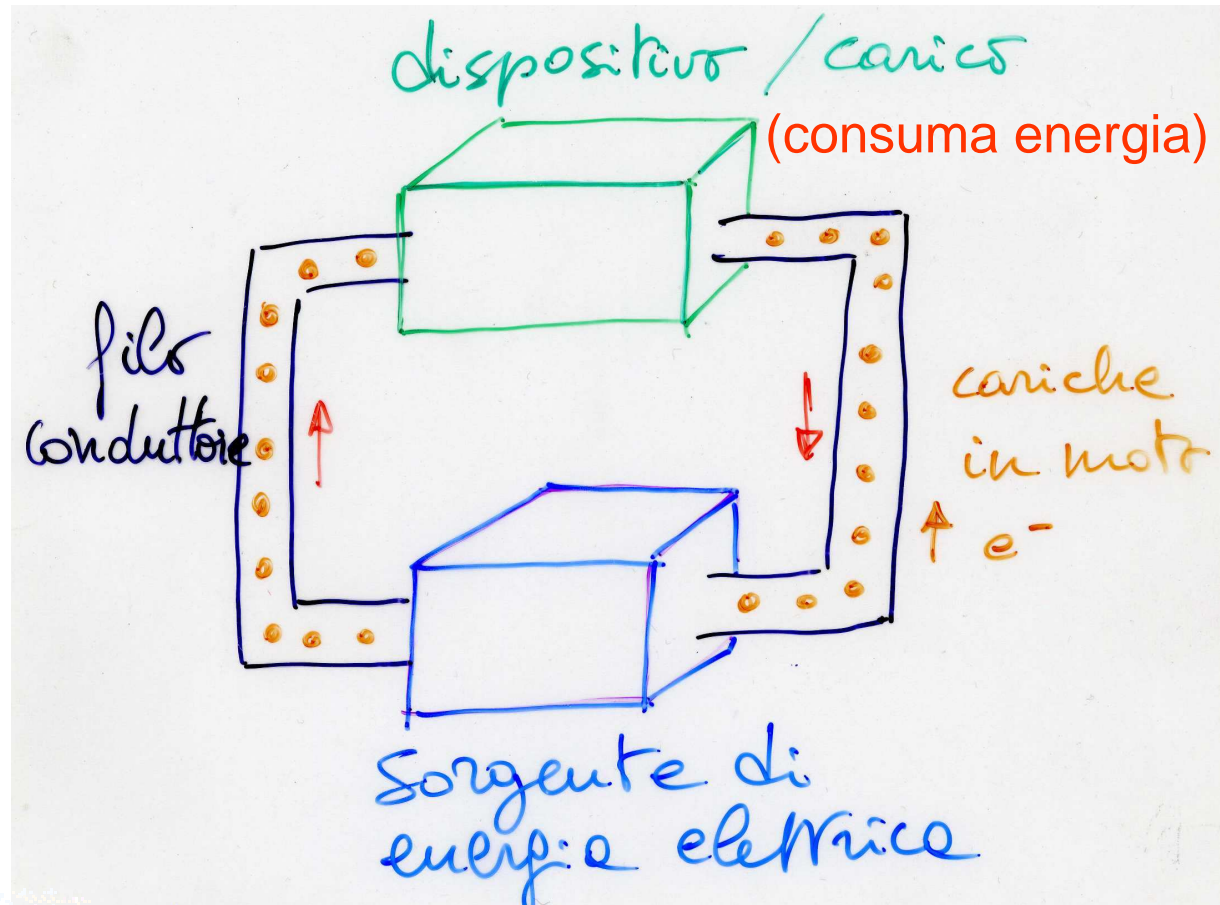 dispositivo / carico
(consuma energia)
filo
conduttore
cariche
in moto
e⁻
Sorgente di
energia elettrica